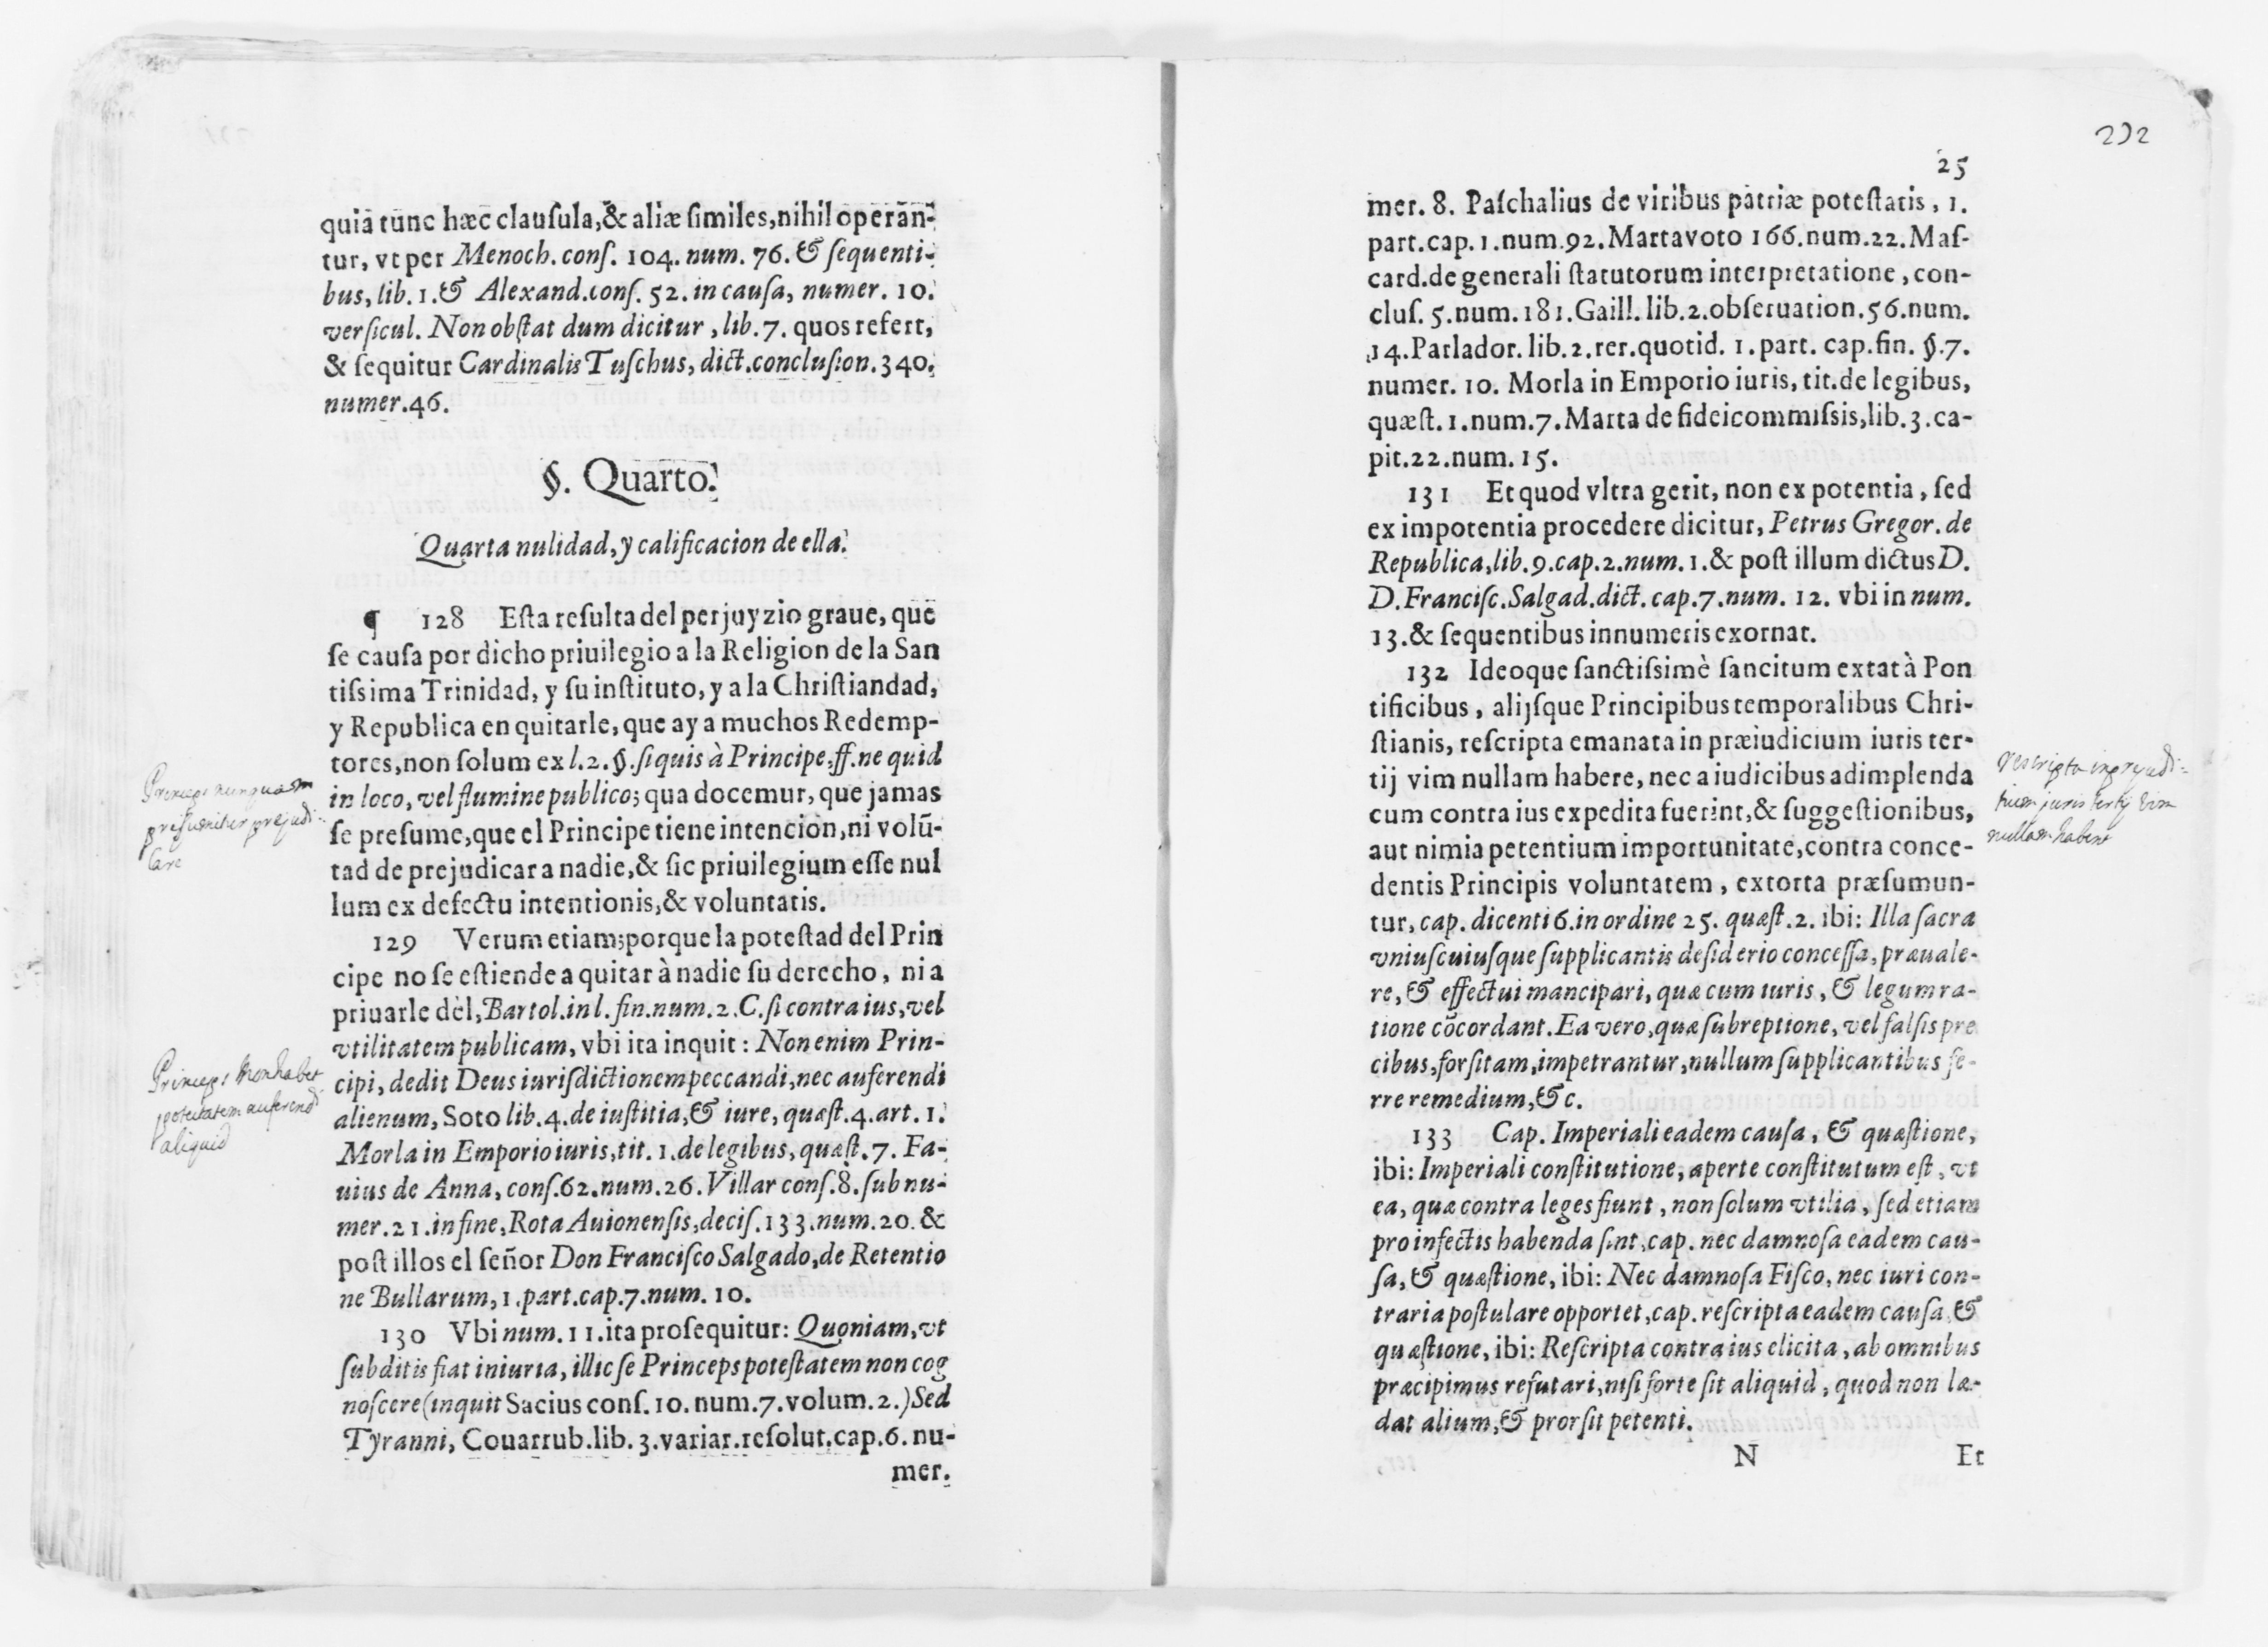 quia tunc hæc clauſula, & aliæ ſimiles, nihil operan-
tur, vt per Menoch. conſ. 104. num. 76. & ſequenti-
bus, lib. 1. & Alexand. conſ. 52. in cauſa, numer. 10.
verſicul. Non obſtat dum dicitur, lib. 7. quos refert,
& ſequitur Cardinalis Tuſchus, dict. concluſion. 340.
numer. 46.
§. Quarto.
Quarta nulidad, y calificacion de ella.
¶ 128 Eſta reſulta del perjuyzio graue, que
ſe cauſa por dicho priuilegio a la Religion de la San
tiſsima Trinidad, y ſu inſtituto, y a la Chriſtiandad,
y Republica en quitarle, que ay a muchos Redemp-
tores, non ſolum ex l. 2. §. ſi quis à Principe, ff. ne quid
in loco, vel flumine publico; qua docemur, que jamas
ſe preſume, que el Principe tiene intencion, ni volũ-
tad de prejudicar a nadie, & ſic priuilegium eſſe nul
lum ex defectu intentionis, & voluntatis.
Princeps nunquam
presumitur prejudi-
care
129 Verum etiam; porque la poteſtad del Prin
cipe no ſe eſtiende a quitar à nadie ſu derecho, ni a
priuarle dèl, Bartol. in l. fin. num. 2. C. ſi contra ius, vel
vtilitatem publicam, vbi ita inquit: Non enim Prin-
cipi, dedit Deus iuriſdictionem peccandi, nec auferendi
alienum, Soto lib. 4. de iuſtitia, & iure, quæſt. 4. art. 1.
Morla in Emporio iuris, tit. 1. de legibus, quæſt. 7. Fa-
uius de Anna, conſ. 62. num. 26. Villar conſ. 8. ſub nu-
mer. 21. in fine, Rota Auionenſis, deciſ. 133. num. 20. &
poſt illos el ſeñor Don Franciſco Salgado, de Retentio
ne Bullarum, 1. part. cap. 7. num. 10.
Princeps non habet
potestatem auferendi
aliquid
130 Vbi num. 11. ita proſequitur: Quoniam, vt
ſubditis fiat iniuria, illic ſe Princeps poteſtatem non cog
noſcere (inquit Sacius conſ. 10. num. 7. volum. 2.) Sed
Tyranni, Couarrub. lib. 3. variar. reſolut. cap. 6. nu-
mer.
232
25
mer. 8. Paſchalius de viribus patriæ poteſtatis, 1.
part. cap. 1. num. 92. Marta voto 166. num. 22. Maſ-
card. de generali ſtatutorum interpretatione, con-
cluſ. 5. num. 181. Gaill. lib. 2. obſeruation. 56. num.
14. Parlador. lib. 2. rer. quotid. 1. part. cap. fin. §. 7.
numer. 10. Morla in Emporio iuris, tit. de legibus,
quæſt. 1. num. 7. Marta de fideicommiſsis, lib. 3. ca-
pit. 22. num. 15.
131 Et quod vltra gerit, non ex potentia, ſed
ex impotentia procedere dicitur, Petrus Gregor. de
Republica, lib. 9. cap. 2. num. 1. & poſt illum dictus D.
D. Franciſc. Salgad. dict. cap. 7. num. 12. vbi in num.
13. & ſequentibus innumeris exornat.
132 Ideoque ſanctiſsimè ſancitum extat à Pon
tificibus, alijſque Principibus temporalibus Chri-
ſtianis, reſcripta emanata in præiudicium iuris ter-
tij vim nullam habere, nec a iudicibus adimplenda
cum contra ius expedita fuerint, & ſuggeſtionibus,
aut nimia petentium importunitate, contra conce-
dentis Principis voluntatem, extorta præſumun-
tur, cap. dicenti 6. in ordine 25. quæſt. 2. ibi: Illa ſacra
vniuſcuiuſque ſupplicantis deſiderio conceſſa, præuale-
re, & effectui mancipari, quæ cum iuris, & legum ra-
tione cõcordant. Ea vero, quæ ſubreptione, vel falſis pre
cibus, forſitam, impetrantur, nullum ſupplicantibus fe-
rre remedium, &c.
rescripta in prejudi-
tium juris tertij vim
nullam habent
133 Cap. Imperiali eadem cauſa, & quæſtione,
ibi: Imperiali conſtitutione, aperte conſtitutum eſt, vt
ea, quæ contra leges fiunt, non ſolum vtilia, ſed etiam
pro infectis habenda ſint, cap. nec damnoſa eadem cau-
ſa, & quæſtione, ibi: Nec damnoſa Fiſco, nec iuri con-
traria poſtulare oportet, cap. reſcripta eadem cauſa &
quæſtione, ibi: Reſcripta contra ius elicita, ab omnibus
præcipimus refutari, niſi forte ſit aliquid, quod non læ-
dat alium, & prorſit petenti.
N Et